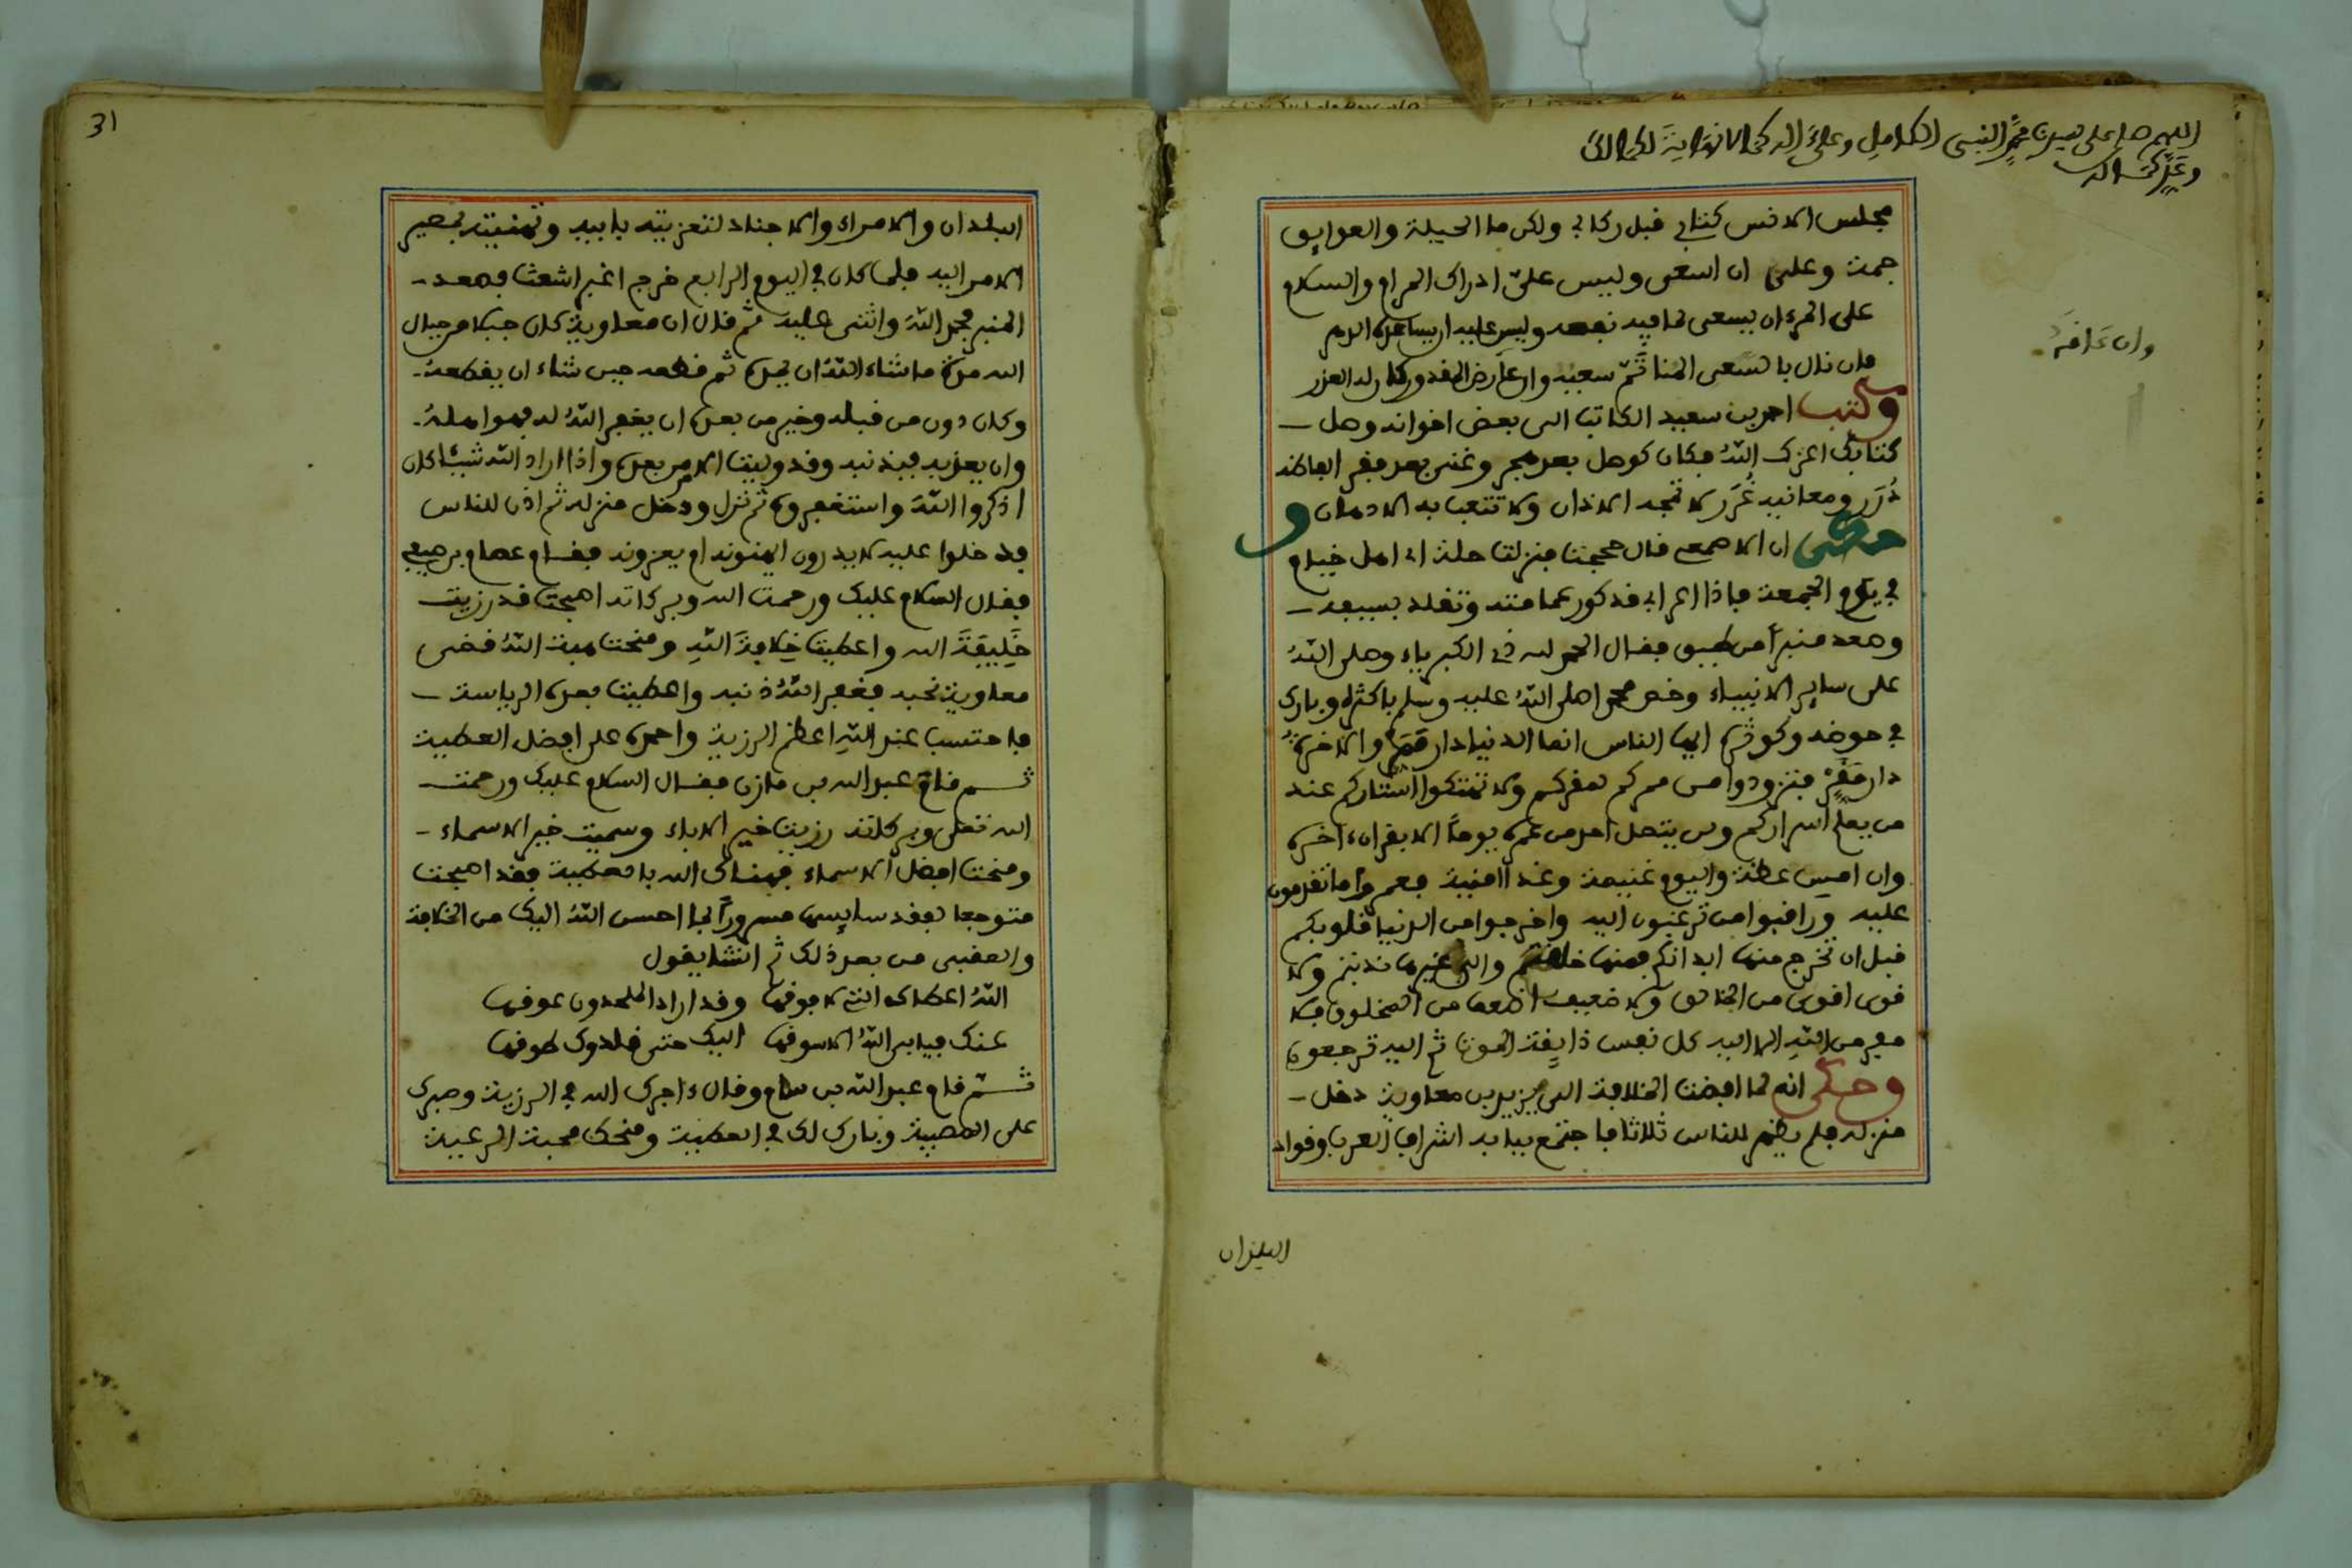 اللهم صل على سيدنا محمد النبي الكامل وعلى اله كما لا نهاية لكمالك
وعدد كماله
مجلس الانس كتابي قبل ركابي ولكن ما الحيلة والعوايق
جمة وعلي ان اسعى وليس علي ادراك المرام والسلام
على المرء ان يسعى لما فيه نفعه وليس عليه ان يساعده الدهر
فان نال بالسعى المنا تم سعيه وان عارض المقدور كان له العذر
وان عاقه
وكتب احمد بن سعيد الكاتب الى بعض اخوانه وصل
كتابك اعزك الله فكان كوصل بعد هجر وغنى بعد فقر الفاظه
درر ومعانيه غرر لا تمجه الاذان ولا تتعب به الاذهان و
حكى ان الاصمعي قال حججت فنزلنا حلة اي اهل خيام
في يوم الجمعة فاذا اعرابي قد كور عمامته وتقلد بسيفه
وصعد منبرا من طين فقال الحمد لله ذي الكبرياء وصلى الله
على ساير الانبياء وخص محمدا صلى الله عليه وسلم باكثره وبارك
في حوضه وكوثره ايها الناس انما الدنيا دار ممر والاخرة
دار مقر فتزودوا من ممركم لمقركم ولا تهتكوا استاركم عند
من يعلم اسراركم ولن يتصل احد من عمره يوما الا بفراق اخره
وان امس عظة واليوم غنيمة وغدا امنية فعمروا ما تقدمون
عليه وراقبوا من ترغبون اليه واخرجوا من الدنيا قلوبكم
قبل ان تخرج منها ابدانكم فمنها خلقتم والى غيرها ندبتم ولا
قوى اقوى من الخالق ولا ضعيف اضعف من المخلوق فلا
مفر من الله الا اليه كل نفس ذايقة الموت ثم اليه ترجعون
وحكى انه لما افضت الخلافة الى يزيد بن معاوية دخل
منزله فلم يظهر للناس ثلاثا فاجتمع ببابه اشراف العرب وقواد
البلدان
31
البلدان والامراء والاجناد لتعزيته بابيه وتهنيته بمصير
الامر اليه فلما كان في اليوم الرابع خرج اغبر اشعث فصعد
المنبر فحمد الله واثنى عليه ثم قال ان معاوية كان حبلا من حبال
الله مده ما شاء الله ان يمده ثم قطعه حين شاء ان يقطعه
وكان دون من قبله وخير من بعده ان يغفر الله له فهو اهله
وان يعذبه فبذنبه وقد وليت الامر بعده واذا اراد الله شيئا كان
اذكروا الله واستغفروه ثم نزل ودخل منزله ثم اذن للناس
فدخلوا عليه لا يدرون ايهنونه ام يعزونه فقام عصام بن صيفي
فقال السلام عليك ورحمت الله وبركاته اصبحت قد رزيت
خليفة الله واعطيت خلافة الله ومنحت هبة الله قضى
معاوية نحبه فغفر الله ذنبه واعطيت بعده الرياسة
فاحتسب عند الله اعظم الرزية واحمده على افضل العطية
ثم قام عبد الله بن مازن فقال السلام عليك ورحمت
الله تعلى وبركاته رزيت خير الاباء وسميت خير الاسماء
ومنحت افضل الاسماء فهناك الله بالعطية فقد اصبحت
متوجعا لفقد سايسها مسرورا لما احسن الله اليك من الخلافة
والعقبى من بعد ذلك ثم انشا يقول
الله اعطاك التي لا فوقها وقد اراد الملحدون عوقها
عنك فيابى الله الا سوقها اليك حتى قلدوك طوقها
ثم قام عبد الله بن همام وقال ءاجرك الله في الرزية وصبرك
على المصيبة وبارك لك في العطية ومنحك محبة الرعية